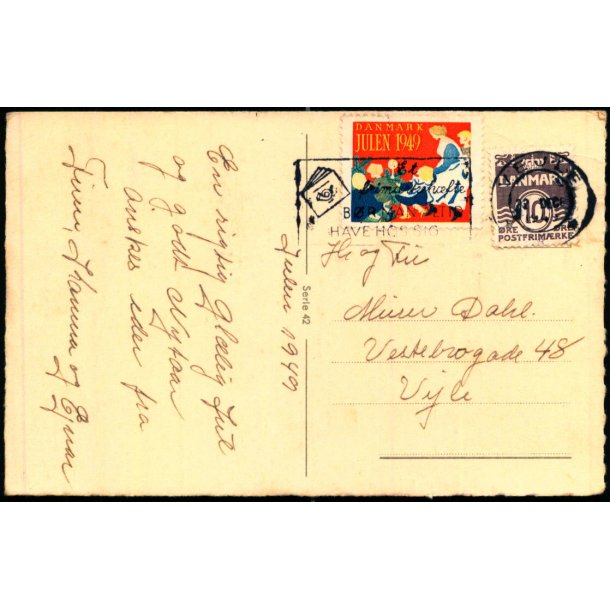 En rigtig Glædig Jul
og godt Nytaar
ønskes eder fra
Finn, Hanna og Ejnar
Julen 1949
Serie 42
DANMARK
JULEN 1949
Et
frimærkehæfte
BØR MAN ALTID
HAVE HOS SIG
VEJLE
DANMARK
10
ØRE ØRE
POSTFRIMÆRKE
Hr og Fru
Murer Dahl.
Vestebrogade 48
Vejle